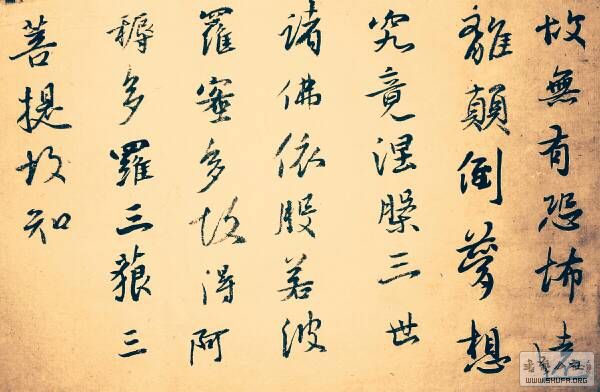 故無有恐怖遠
離顛倒夢想
究竟涅槃三世
諸佛依般若波
羅蜜多故得阿
耨多羅三藐三
菩提故知
WWW.SHUFA.ORG